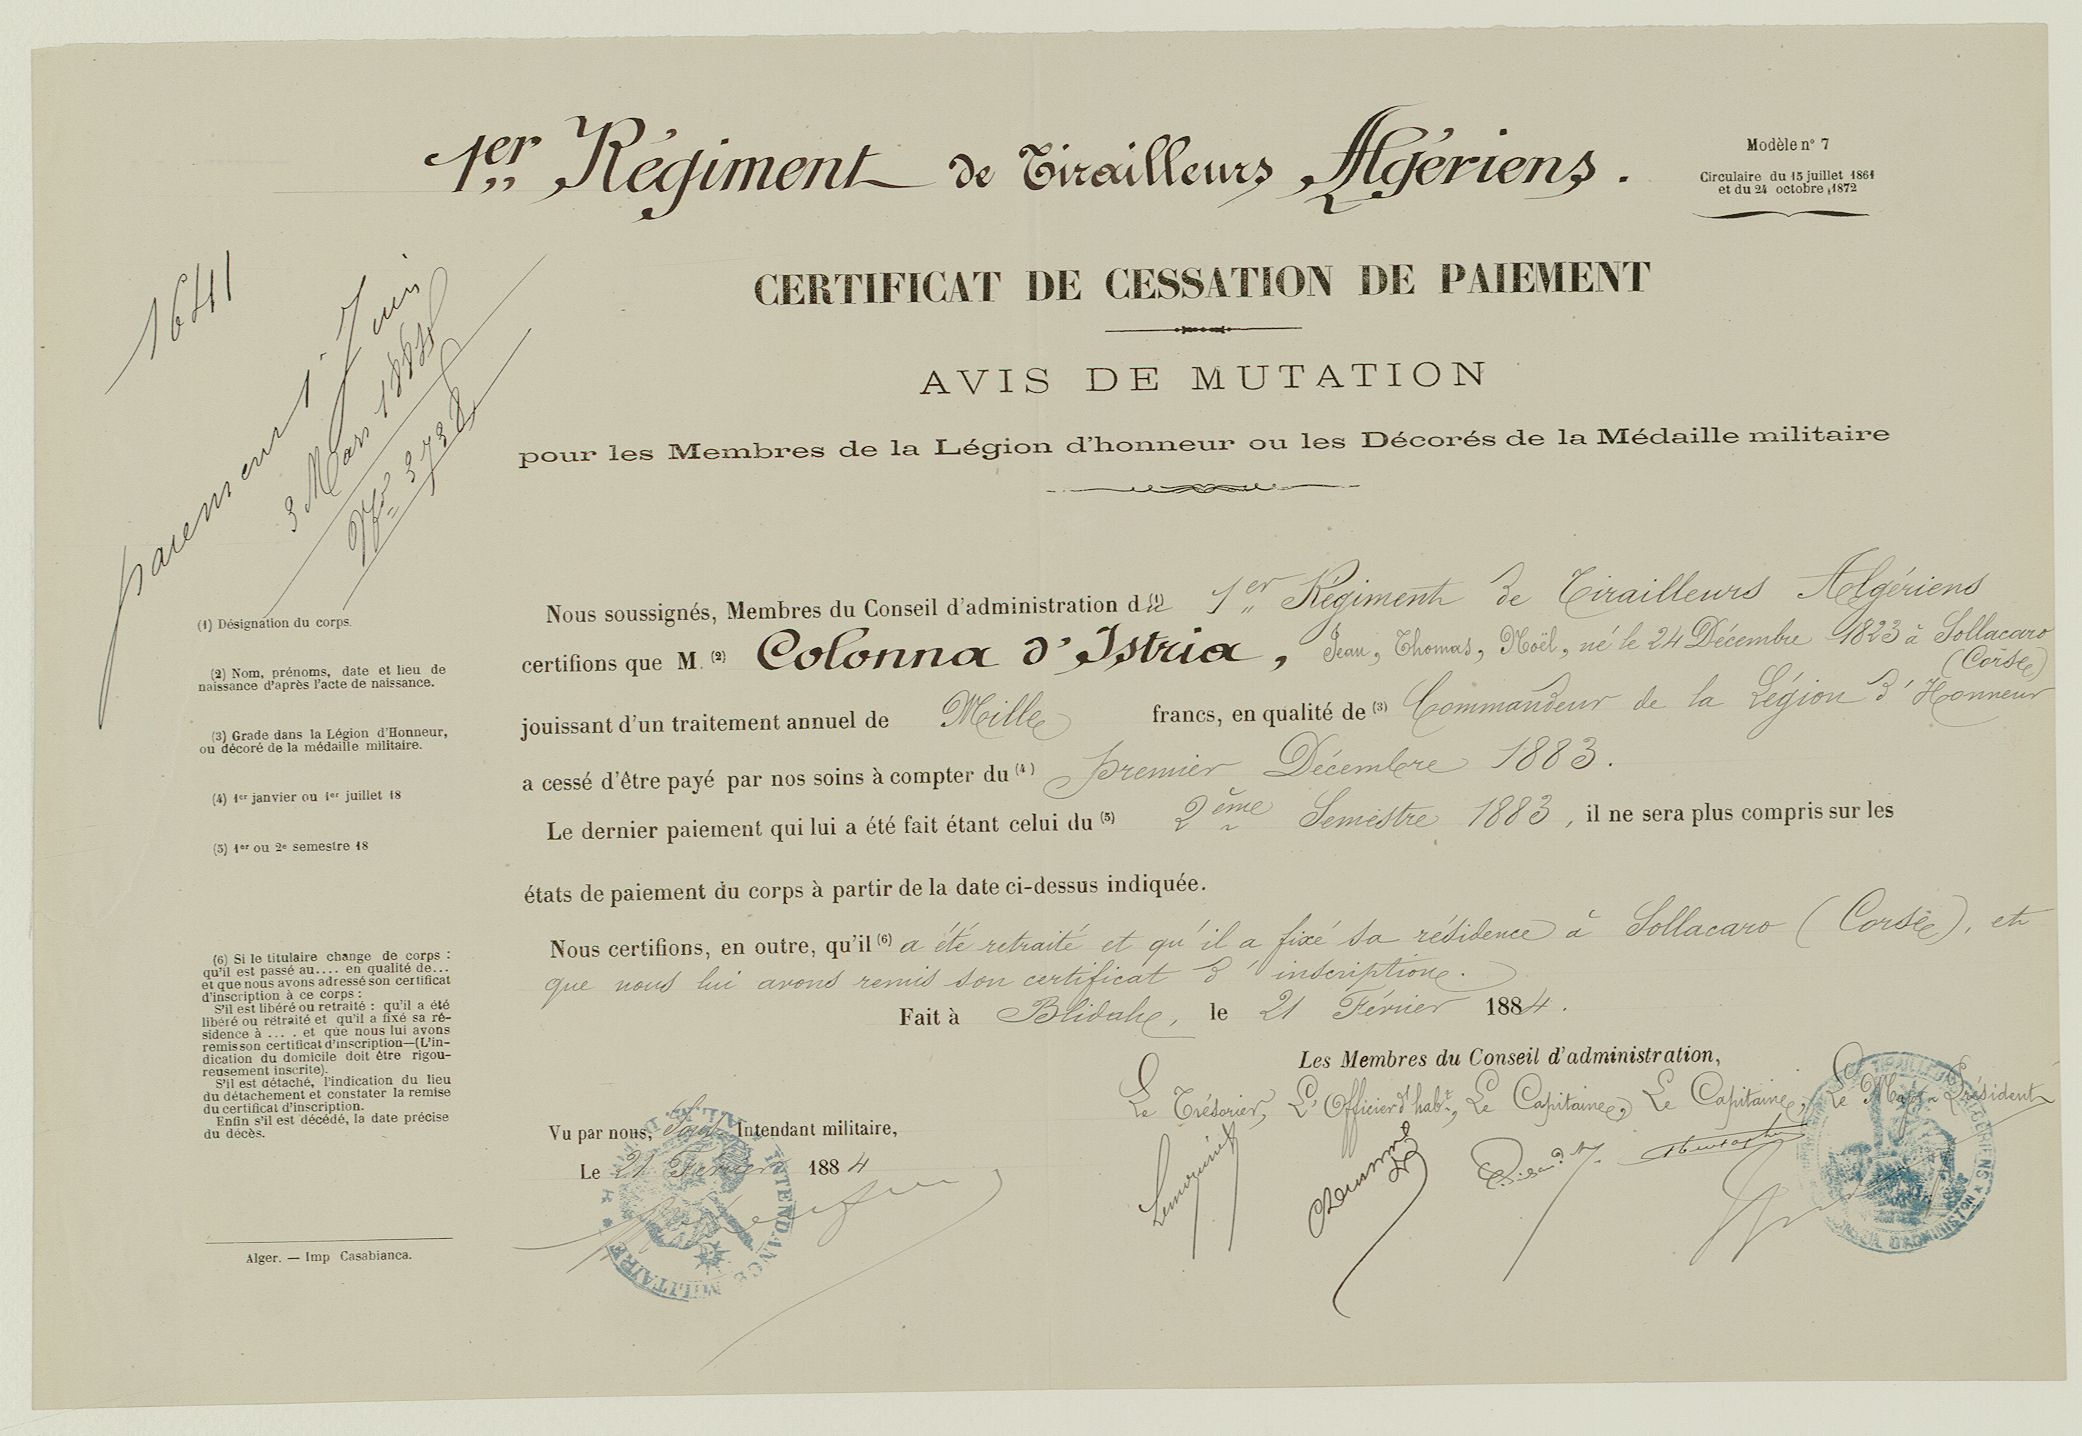 1er Régiment de Tirailleurs Algériens.
Modèle n° 7
Circulaire du 15 juillet 1861
et du 24 octobre 1872
CERTIFICAT DE CESSATION DE PAIEMENT
AVIS DE MUTATION
pour les Membres de la Légion d'honneur ou les Décorés de la Médaille militaire
1641
paiement 1. Juin
3 Mars 1884
Nº 3738
Nous soussignés, Membres du Conseil d'administration d (1) 1er Régiment de Tirailleurs Algériens
certifions que M. (2) Colonna d'Istria, Jean, Thomas, Noël, né le 24 Décembre 1823 à Sollacaro
(Corse)
jouissant d'un traitement annuel de Mille francs, en qualité de (3) Commandeur de la Légion d'Honneur
a cessé d'être payé par nos soins à compter du (4) premier Décembre 1883.
Le dernier paiement qui lui a été fait étant celui du (5) 2ème Semestre 1883, il ne sera plus compris sur les
états de paiement du corps à partir de la date ci-dessus indiquée.
Nous certifions, en outre, qu'il (6) a été retraité et qu'il a fixé sa résidence à Sollacaro (Corse), et
que nous lui avons remis son certificat d'inscription.
Fait à Blidah, le 21 Février 1884.
Les Membres du Conseil d'administration,
Le Trésorier, L'Officier d'habt, Le Capitaine, Le Capitaine, Le Major Président
Vu par nous, Sous-Intendant militaire,
Le 21 Février 1884
INTENDANCE MILITAIRE
CONSEIL D'ADMINISTON
(1) Désignation du corps.
(2) Nom, prénoms, date et lieu de
naissance d'après l'acte de naissance.
(3) Grade dans la Légion d'Honneur,
ou décoré de la médaille militaire.
(4) 1er janvier ou 1er juillet 18
(5) 1er ou 2e semestre 18
(6) Si le titulaire change de corps :
qu'il est passé au.... en qualité de...
et que nous avons adressé son certificat
d'inscription à ce corps :
S'il est libéré ou retraité : qu'il a été
libéré ou retraité et qu'il a fixé sa ré-
sidence à .... et que nous lui avons
remis son certificat d'inscription—(L'in-
dication du domicile doit être rigou-
reusement inscrite).
S'il est détaché, l'indication du lieu
du détachement et constater la remise
du certificat d'inscription.
Enfin s'il est décédé, la date précise
du décès.
Alger. — Imp Casabianca.